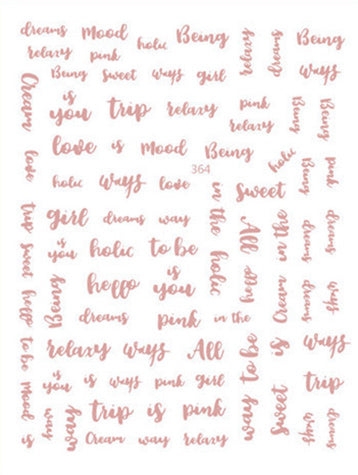 dreams Mood holic Being
relaxy pink
relaxy
dreams
Being
Being Sweet ways girl
ways
Cream
is
you trip relaxy pink
relaxy
Being
Being
love is Mood Being
holic
364
love
holic ways love
in the
holic
Sweet
Being
pink
trip
girl dreams way
All
in the
dreams
dreams
is
you holic to be
sweet
hello
is
you
hello
hello
Cream
dreams
ways
dreams pink in the
to be
relaxy ways All
way to be
is
ways
is
you is ways pink girl
Mood
is
way
trip is pink
Sweet
trip
Cream way relaxy
dreams
ways